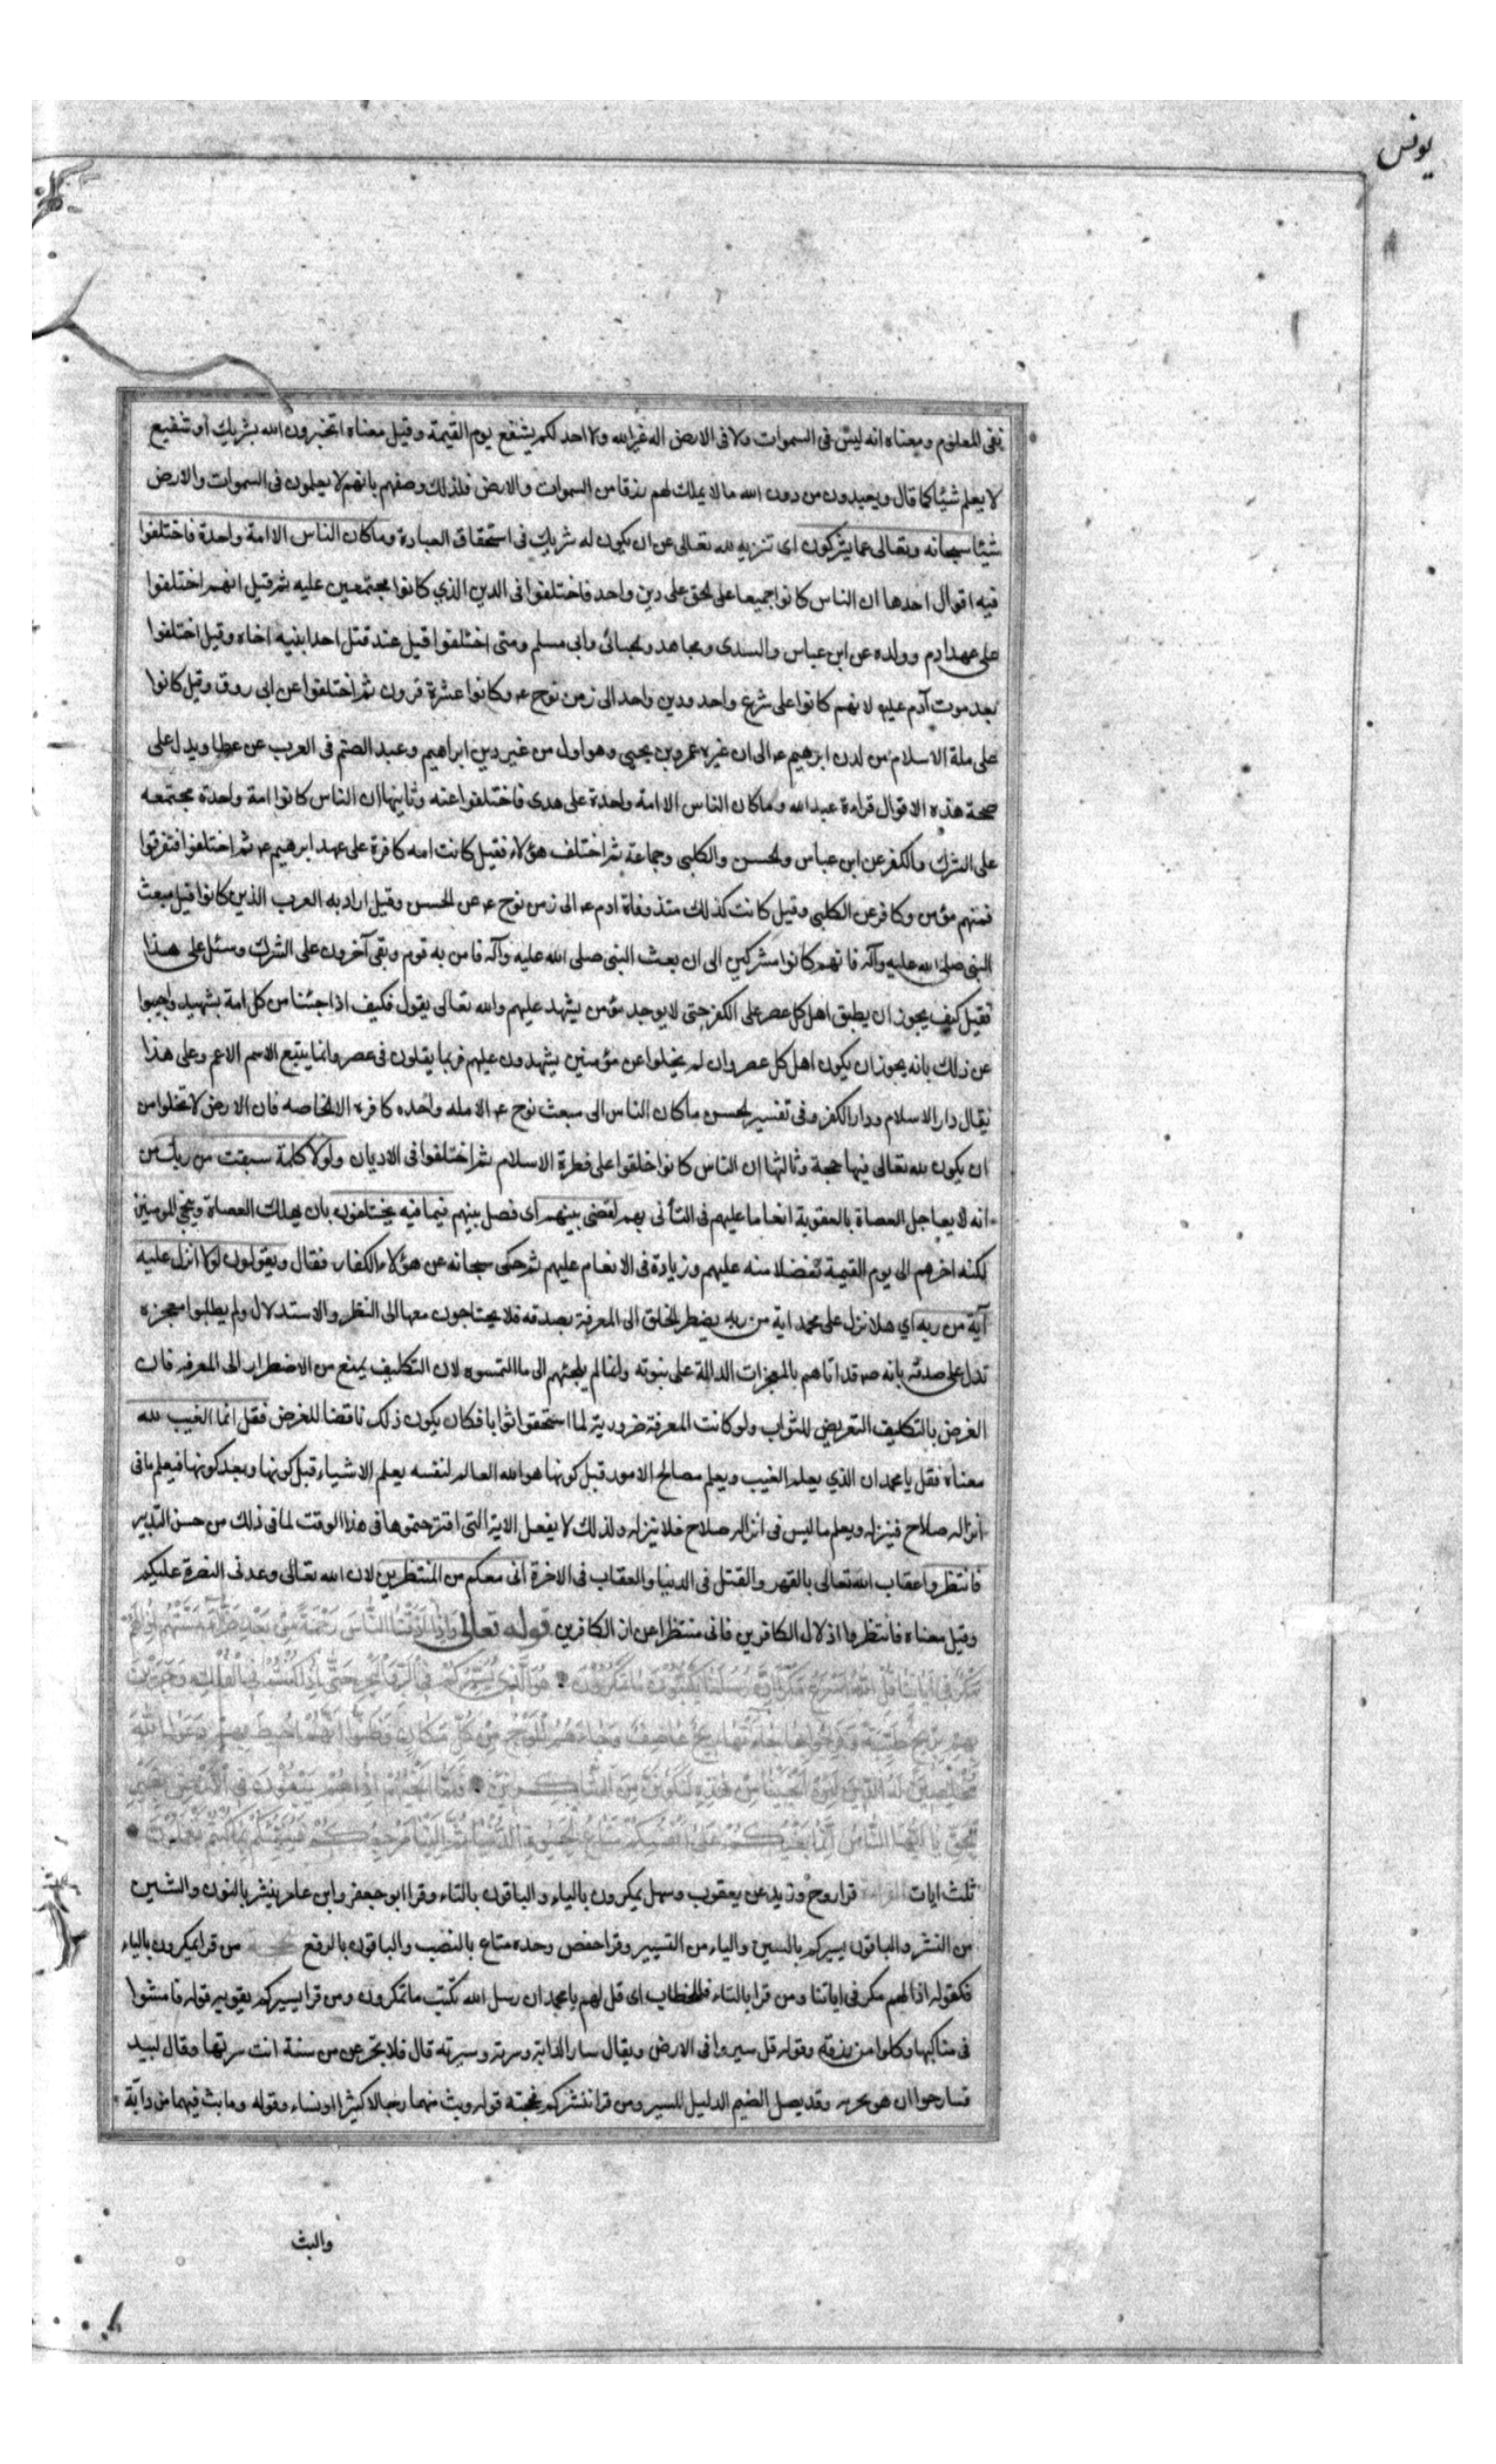 يونس
نفى للمعلوم ومعناه انه ليس فى السموات ولا فى الارض اله غير الله ولا احد لكم يشفع يوم القيمة وقيل معناه اتخبرون الله بشريك او شفيع
لا يعلم شيئا كما قال ويعبدون من دون الله ما لا يملك لهم رزقا من السموات والارض فلذلك وصفهم بانهم لا يعلمون فى السموات والارض
شيئا سبحانه وتعالى عما يشركون اى تنزيه لله تعالى عن ان يكون له شريك فى استحقاق العبادة وما كان الناس الا امة واحدة فاختلفوا
فيه اقوال احدها ان الناس كانوا جميعا على الحق على دين واحد فاختلفوا فى الدين الذي كانوا مجتمعين عليه ثم قيل انهم اختلفوا
على عهد ادم وولده عن ابن عباس والسدى ومجاهد والجبائى وابى مسلم ومتى اختلفوا قيل عند قتل احد ابنيه اخاه وقيل اختلفوا
بعد موت آدم عليه لانهم كانوا على شرع واحد ودين واحد الى زمن نوح ع وكانوا عشرة قرون ثم اختلفوا عن ابى روق وقيل كانوا
على ملة الاسلام من لدن ابرهيم ع الى ان غيره عمرو بن يحيى وهو اول من غير دين ابراهيم وعبد الصنم فى العرب عن عطا ويدل على
صحة هذه الاقوال قراءة عبد الله وما كان الناس الا امة واحدة على هدى فاختلفوا عنه وثانيها ان الناس كانوا امة واحدة مجتمعه
على الشرك والكفر عن ابن عباس والحسن والكلبى وجماعة ثم اختلف هؤلاء فقيل كانت امه كافرة على عهد ابرهيم ع ثم اختلفوا فتفرقوا
فمنهم مؤمن وكافر عن الكلبى وقيل كانت كذلك منذ وفاة ادم ع الى زمن نوح ع عن الحسن وقيل اراد به العرب الذين كانوا قبل مبعث
النبى صلى الله عليه وآله فانهم كانوا مشركين الى ان بعث النبى صلى الله عليه وآله فامن به قوم وبقى آخرون على الشرك وسئل على هذا
فقيل كيف يجوز ان يطبق اهل كل عصر على الكفر حتى لا يوجد مؤمن يشهد عليهم والله تعالى يقول فكيف اذا جئنا من كل امة بشهيد واجيبوا
عن ذلك بانه يجوز ان يكون اهل كل عصر وان لم يخلوا عن مؤمنين يشهدون عليهم فربما يقلون فى عصر وانما يتبع الاسم الاعم وعلى هذا
يقال دار الاسلام ودار الكفر وفى تفسير الحسن ما كان الناس الى مبعث نوح ع الا مله واحده كافره الا الخاصه فان الارض لا تخلوا من
ان يكون لله تعالى فيها حجة وثالثها ان الناس كانوا خلقوا على فطرة الاسلام ثم اختلفوا فى الاديان ولولا كلمة سبقت من ربك من
انه لا يعاجل العصاة بالعقوبة انعاما عليهم فى التأنى بهم لقضى بينهم اى فصل بينهم فيما فيه يختلفون بان يهلك العصاة وينجي المومنين
لكنه اخرهم الى يوم القيمة تفضلا منه عليهم وزيادة فى الانعام عليهم ثم حكى سبحانه عن هؤلاء الكفار فقال ويقولون لولا انزل عليه
آية من ربه اي هلا نزل على محمد اية من ربه يضطر الخلق الى المعرفة بصدقه فلا يحتاجون معها الى النظر والاستدلال ولم يطلبوا معجزه
تدل على صدقه بانه ص قد اتاهم بالمعجزات الدالة على نبوته وانما لم يلجئهم الى ما التمسوه لان التكليف يمنع من الاضطرار الى المعرفه فان
الغرض بالتكليف التعريض للثواب ولو كانت المعرفة ضرورية لما استحقوا ثوابا فكان يكون ذلك ناقضا للغرض فقل انما الغيب لله
معناه فقل يا محمد ان الذي يعلم الغيب ويعلم مصالح الامور قبل كونها هو الله العالم لنفسه يعلم الاشياء قبل كونها وبعد كونها فيعلم ما فى
انزاله صلاح فينزله ويعلم ما ليس فى انزاله صلاح فلا ينزله ولذلك لا يفعل الاية التى اقترحتموها فى هذا الوقت لما فى ذلك من حسن التدبير
فانتظروا عقاب الله تعالى بالقهر والقتل فى الدنيا والعقاب فى الاخرة انى معكم من المنتظرين لان الله تعالى وعدنى النصرة عليكم
وقيل معناه فانتظروا اذلال الكافرين فانى منتظر اعزاز الكافرين قوله تعالى واذا اذقنا الناس رحمة من بعد ضراء مستهم اذا لهم
مكر فى اياتنا قل الله اسرع مكرا ان رسلنا يكتبون ما تمكرون هو الذى يسيركم فى البر والبحر حتى اذا كنتم فى الفلك وجرين
بهم بريح طيبة وفرحوا بها جاءتها ريح عاصف وجاءهم الموج من كل مكان وظنوا انهم احيط بهم دعوا الله
مخلصين له الدين لئن انجيتنا من هذه لنكونن من الشاكرين فلما انجيهم اذا هم يبغون فى الارض بغير
الحق يا ايها الناس انما بغيكم على انفسكم متاع الحيوة الدنيا ثم الينا مرجعكم فننبئكم بما كنتم تعملون
ثلث ايات القراءة قرا روح وزيد عن يعقوب وسهل يمكرون بالياء والباقون بالتاء وقرا ابو جعفر وابن عامر ينشركم بالنون والشين
من النشر والباقون يسيركم بالسين والياء من التسيير وقرا حفص وحده متاع بالنصب والباقون بالرفع من قرا يمكرون بالياء
فكقوله اذا لهم مكر فى اياتنا ومن قرا بالتاء فللخطاب اى قل لهم يا محمد ان رسل الله تكتب ما تمكرون ومن قرا يسيركم يقويه قوله فامشوا
فى مناكبها وكلوا من رزقه وقوله قل سيروا فى الارض ويقال سار الدابة وسرته وسيرته قال فلا تجزعن من سنة انت سرتها وقال لبيد
وقد يصل الضيم الدليل للسير ومن قرا ننشركم فحجته قوله وبث منهما رجالا كثيرا ونساء وقوله وما بث فيهما من دابة
والبث